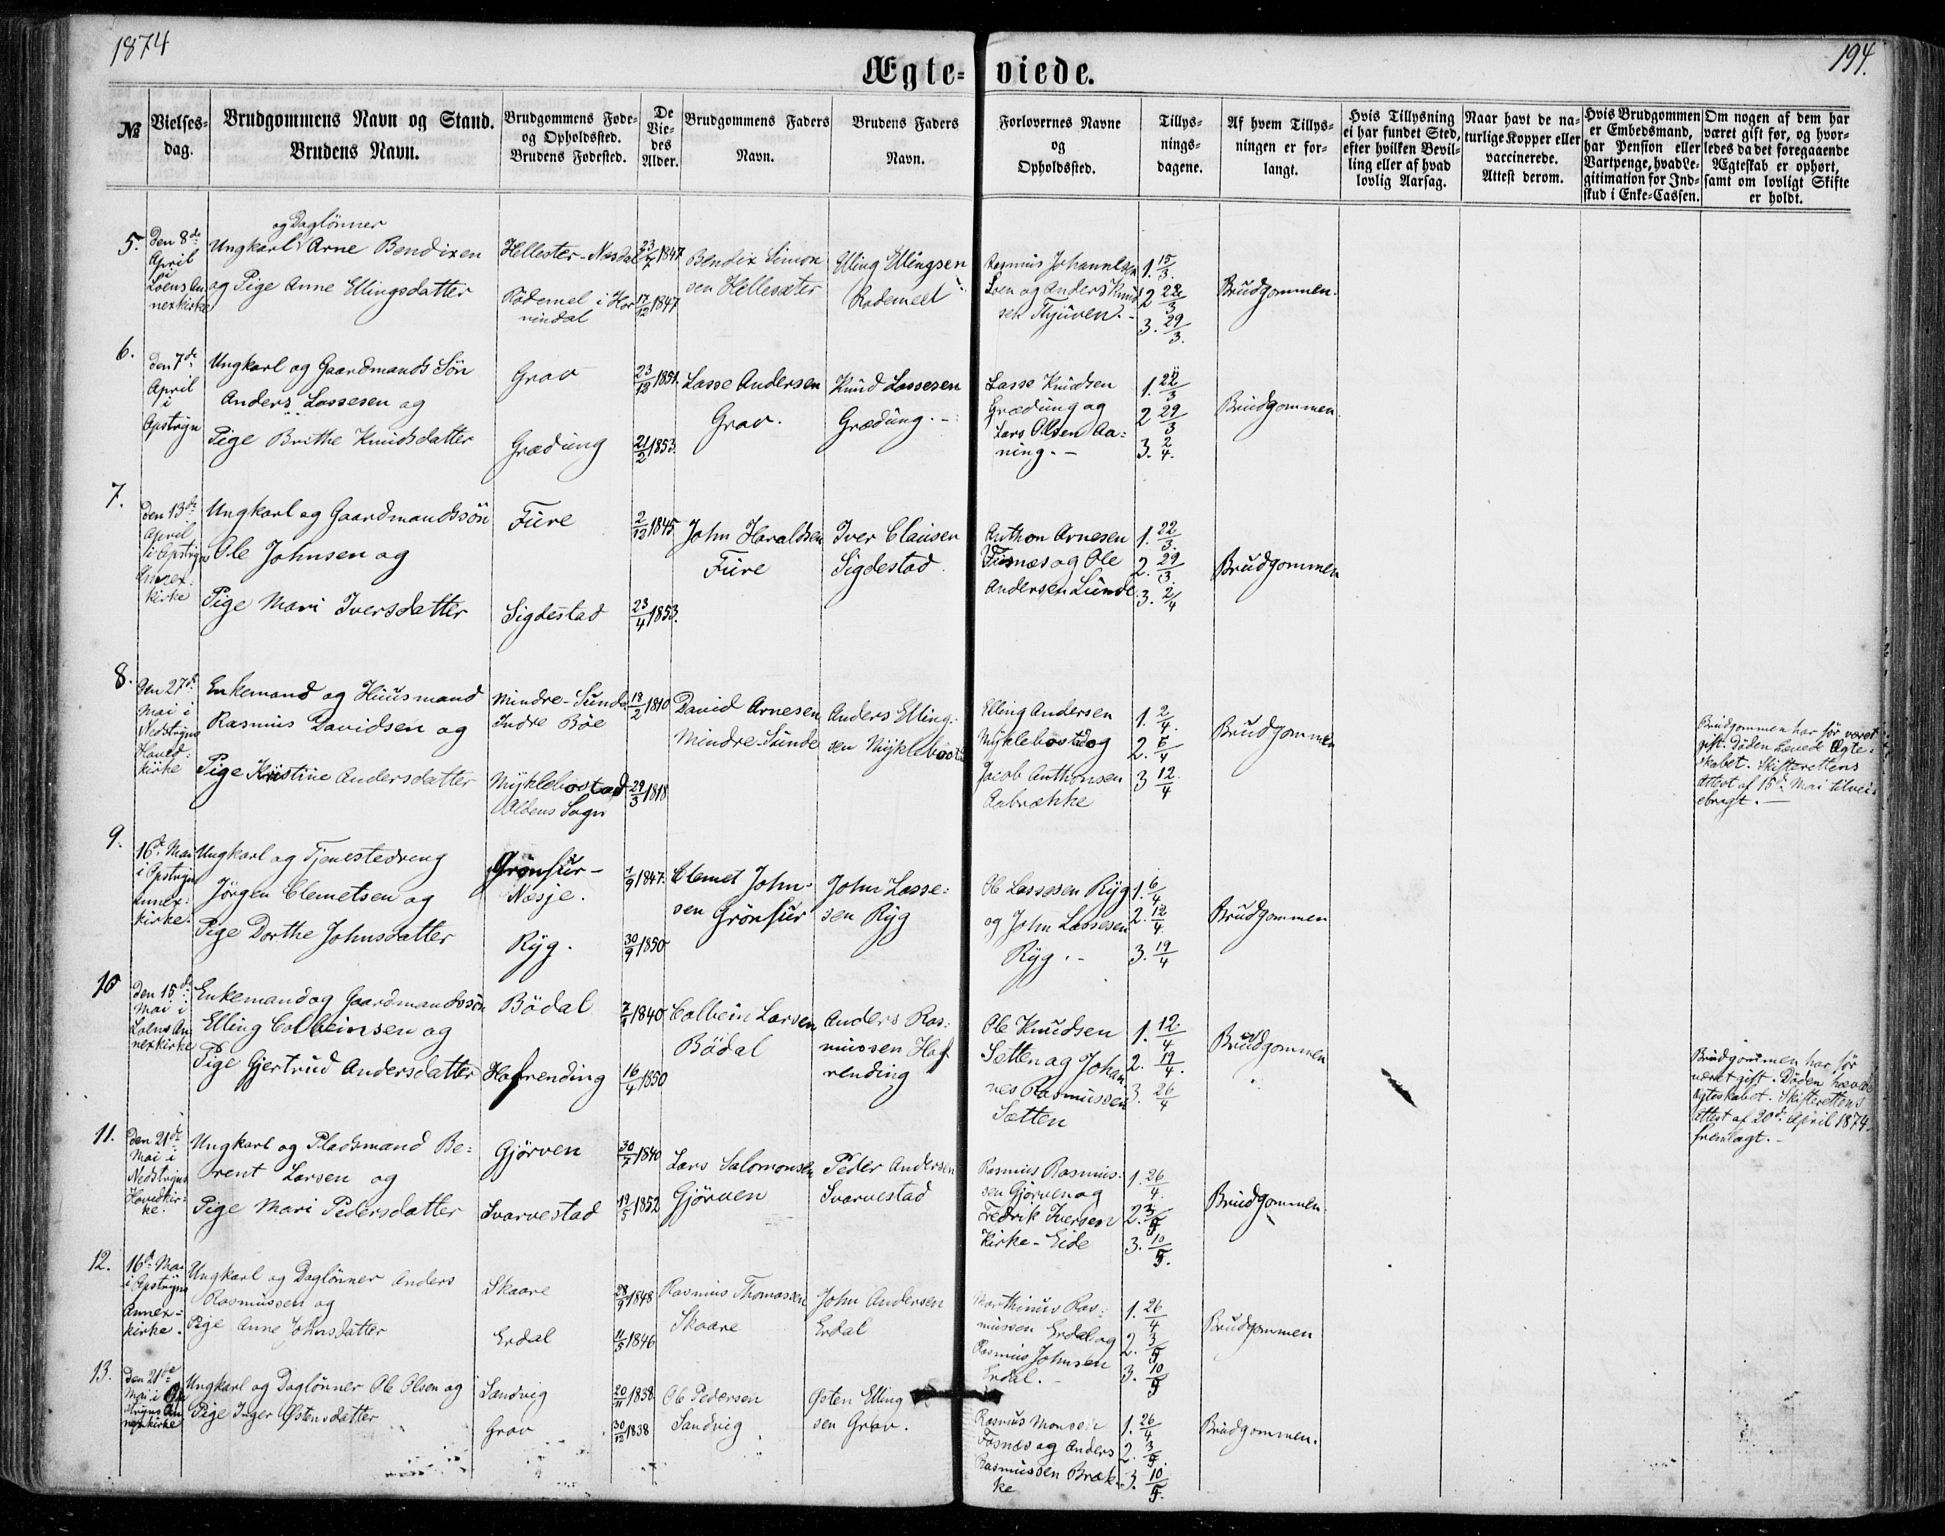 1874
194.
Ægte-viede.
№
Vielses-
dag.
Brudgommens Navn og Stand.
Brudens Navn.
Brudgommens Føde-
og Opholdssted.
Brudens Fødested.
De
Vie-
des
Alder.
Brudgommens Faders
Navn.
Brudens Faders
Navn.
Forlovernes Navne
og
Opholdssted.
Tillys-
nings-
dagene.
Af hvem Tillys-
ningen er for-
langt.
Hvis Tillysning
ei har fundet Sted,
efter hvilken Bevil-
ling eller af hvad
lovlig Aarsag.
Naar havt de na-
turlige Kopper eller
vaccinerede.
Attest derom.
Hvis Brudgommen
er Embedsmand,
har Pension eller
Vartpenge, hvad Le-
gitimation for Ind-
skud i Enke-Cassen.
Om nogen af dem har
været gift før, og hvor-
ledes da det foregaaende
Ægteskab er ophørt,
samt om lovligt Skifte
er holdt.
5.
den 8de
April
i
Loens An
nexkirke
og Daglønner
Ungkarl Arne Bendixen
og Pige Anne Ellingsdatter
Hellester-Næsdal
Rødemel i Hor
nindal
23/7 1847
17/12 1847
Bendix Simon
sen Hellesæter
Elling Ellingsen
Rødemel
Rasmus Johannesen
Loen og Anders Knud
sen Thjuven.-
1. 15/3.
2 22/3
3. 29/3.
Brudgommen.
6.
den 7de
April
i
Opstryn
Ungkarl og Gaardmands Søn
Anders Lassesen og
Pige Brithe Knudsdatter
Grov
Grædung
23/12 1851.
21/2 1853.
Lasse Andersen
Grov.
Knud Lassesen
Grædung.-
Lasse Knudsen
Grædung og
Lars Olsen Aa=
ning.-
1. 22/3
2 29/3
3. 2/4.
Brudgommen.
7.
den 13de
April
i Opstryns
Annex-
kirke
Ungkarl og Gaardmandssøn
Ole Johnsen og
Pige Mari Iversdatter
Fure
Sigdestad
2/12 1845.
23/4 1853.
John Haraldsen
Fure
Iver Clausen
Sigdestad.
Anthon Arnesen
Fosnæs og Ole
Andersen Lunde.
1. 22/3.
2. 29/3.
3. 2/4
Brudgommen
8.
den 27de
Mai i
Nedstryns
Hoved-
kirke
Enkemand og Huusmand
Rasmus Davidsen og
Pige Kristine Andersdatter
Mindre-Sunde
Indre Bøe
Myklebostad
Olbens Sogn
13/2 1810
29/3 1818
David Arnesen
Mindre-Sunde
Anders Elling-
sen Myklebostd
Elling Andersen
Myklebostad og
Jacob Anthonsen
Aabrække
1. 2/4.
2. 5/4
3 12/4
Brudgommen
Brudgommen har før været
gift. Døden hævede Ægte-
skabet. Skifterettens
Attest af 15de Mai tilvei-
ebragt.-
9.
16de Mai
i Opstryns
Annex-
kirke.
Ungkarl og Tjenestedreng
Jørgen Clemetsen og
Pige Dorthe Johnsdatter
Grønfur-
Næsje.
Ryg.
1/9 1847.
30/9 1850.
Clemet John-
sen Grønfur
John Lasse-
sen Ryg
Ole Lassesen Ryg
og John Lassesen
Ryg.-
1. 6/4.
2. 12/4.
3. 19/4
Brudgommen
10
den 15de
Mai i
Loens An
nexkirke
Enkemand og Gaardmandssøn
Elling Colbeinsen og
Pige Gjertrud Andersdatter
Bødal
Hafrending
1840
16/4 1850
Colbein Larsen
Bødal
Anders Ras-
mussen Haf
rending
Ole Knudsen
Sætten og Johan
nes Rasmussen
Sætten
1. 12/4
2. 19/4.
3. 26/4
Brudgommen
Brudgommen har før
været gift. Døden hævede
Ægteskabet. Skifterettens
Attest af 20de April 1874.
fremlagt.-
11.
den 21de
Mai i
Nedstryns
Hovedkir-
ke.
Ungkarl og Pladsmand Be-
rent Larsen og
Pige Mari Pedersdatter
Gjørven
Svarvestad
30/7 1840
19/5 1852
Lars Salomonsen
Gjørven
Peder Andersen
Svarvestad
Rasmus Rasmus-
sen Gjørven og
Fredrik Iversen
Kirke-Eide
1. 26/4.
2. 3/5
3. 10/5.
Brudgommen
12.
16de Mai
i Opstryns
Annex-
kirke.
Ungkarl og Daglønner Anders
Rasmussen og
Pige Anne Johnsdatter
Skaare
Erdal
28/9 1848
11/5 1846
Rasmus Thomassen
Skaare
John Andersen
Erdal
Marthinus Ras-
mussen Erdal og
Rasmus Johnsen
Erdal.-
1. 26/4
2. 3/5
3. 10/5
Brudgommen
13.
den 21de
Mai i Op
stryns An
nexkirke
Ungkarl og Daglønner Ole Olsen og
Pige Inger Østensdatter
Sandvig
Grov
20/11 1858
30/12 1838
Ole Pedersen
Sandvig
Østen Elling
sen Grov.
Rasmus Monsen
Fosnæs og Anders
Rasmussen Bræk-
ke
1. 26/4
2. 3/5.
3. 10/5.
Brudgommen.